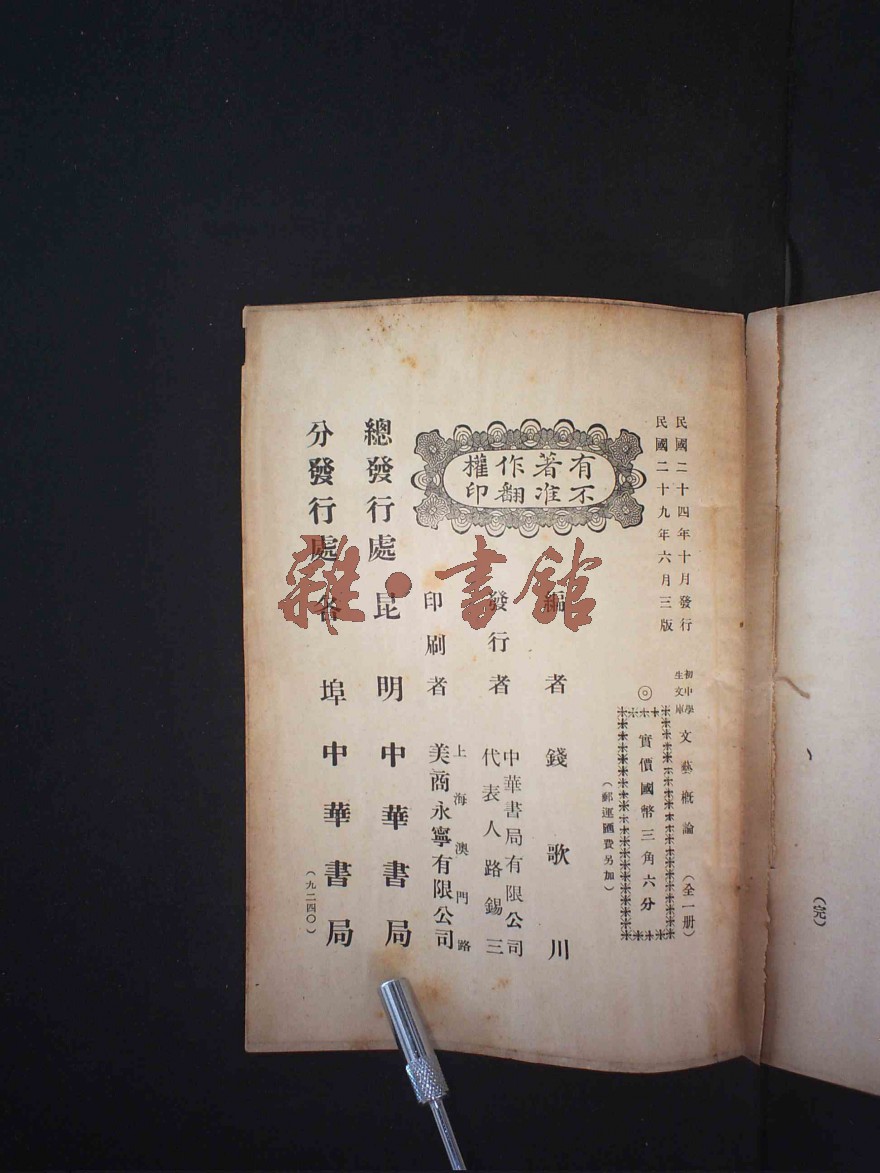 （完）
民國二十四年十月發行
民國二十九年六月三版
初中學生文庫 文藝概論 （全一册）
◎實價國幣三角六分
（郵運匯費另加）
有著作權
不准翻印
編者 錢歌川
發行者 中華書局有限公司
代表人路錫三
印刷者 上海澳門路
美商永寧有限公司
總發行處 昆明中華書局
分發行處 各埠中華書局
（九二四〇）
雜·書館